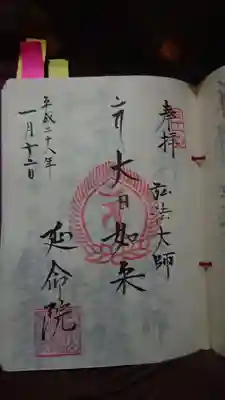 奉拝
弘法大師
大日如来
延命院
平成二十八年
一月十二日